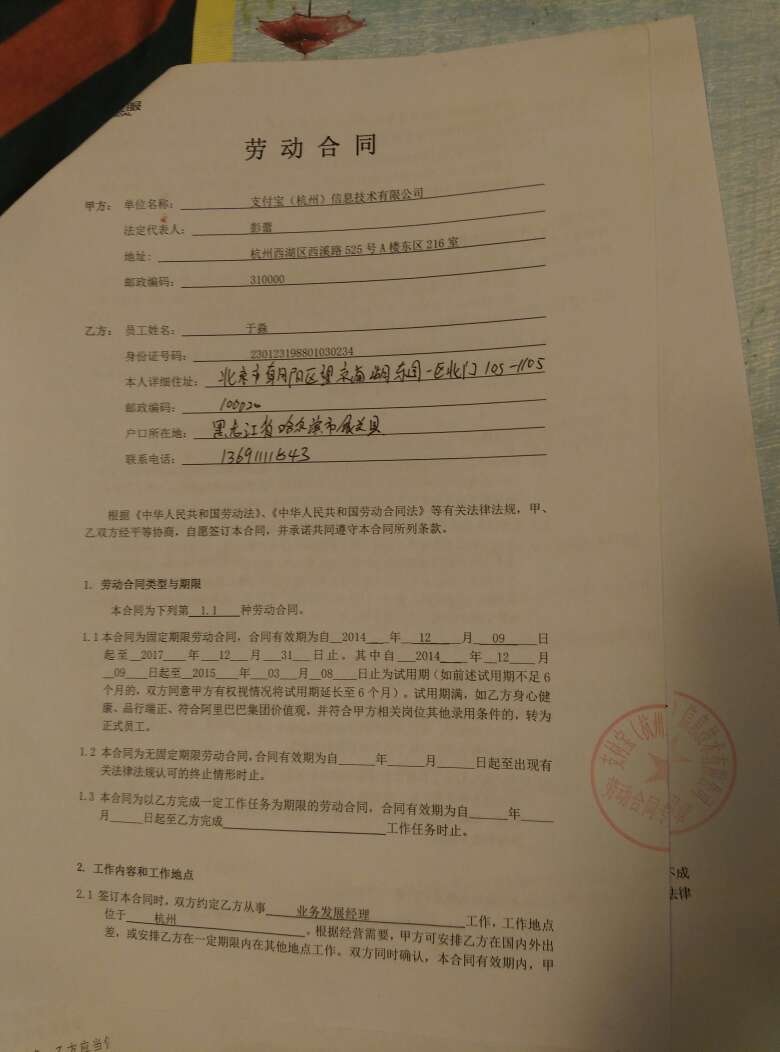 劳动合同
甲方： 单位名称： 支付宝（杭州）信息技术有限公司
法定代表人： 彭蕾
地址： 杭州西湖区西溪路 525 号 A 楼东区 216 室
邮政编码： 310000
乙方： 员工姓名： 于淼
身份证号码： 230123198801030234
本人详细住址： 北京市朝阳区望京南湖东园一区北门 105-1105
邮政编码： 10002
户口所在地： 黑龙江省哈尔滨市
联系电话： 13691111543
根据《中华人民共和国劳动法》、《中华人民共和国劳动合同法》等有关法律法规，甲、
乙双方经平等协商，自愿签订本合同，并承诺共同遵守本合同所列条款。
1. 劳动合同类型与期限
本合同为下列第 1.1 种劳动合同。
1.1 本合同为固定期限劳动合同，合同有效期为自 2014 年 12 月 09 日
起至 2017 年 12 月 31 日止，其中自 2014 年 12 月
09 日起至 2015 年 03 月 08 日止为试用期（如前述试用期不足 6
个月的，双方同意甲方有权视情况将试用期延长至 6 个月）。试用期满，如乙方身心健
康、品行端正、符合阿里巴巴集团价值观、并符合甲方相关岗位其他录用条件的，转为
正式员工。
1.2 本合同为无固定期限劳动合同，合同有效期为自______年______月______日起至出现有
关法律法规认可的终止情形时止。
1.3 本合同为以乙方完成一定工作任务为期限的劳动合同，合同有效期为自______年_____
月_____日起至乙方完成____________________工作任务时止。
2. 工作内容和工作地点
2.1 签订本合同时，双方约定乙方从事 业务发展经理 工作，工作地点
位于 杭州 。根据经营需要，甲方可安排乙方在国内外出
差，或安排乙方在一定期限内在其他地点工作。双方同时确认，本合同有效期内，甲
支付宝（杭州）信息技术有限公司
劳动合同
不成
法律
乙方应当